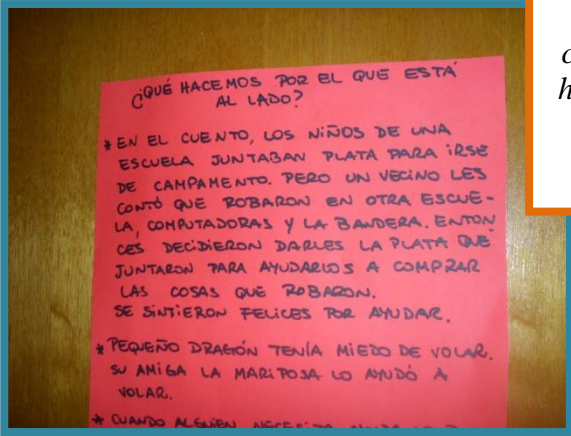 ¿QUÉ HACEMOS POR EL QUE ESTÁ
AL LADO?
* EN EL CUENTO, LOS NIÑOS DE UNA
ESCUELA JUNTABAN PLATA PARA IRSE
DE CAMPAMENTO. PERO UN VECINO LES
CONTÓ QUE ROBARON EN OTRA ESCUE-
LA, COMPUTADORAS Y LA BANDERA. ENTON
CES DECIDIERON DARLES LA PLATA QUE
JUNTARON PARA AYUDARLOS A COMPRAR
LAS COSAS QUE ROBARON.
SE SINTIERON FELICES POR AYUDAR.
* PEQUEÑO DRAGÓN TENÍA MIEDO DE VOLAR.
SU AMIGA LA MARIPOSA LO AYUDÓ A
VOLAR.
* CUANDO ALGUIEN NECESITA AYUDA